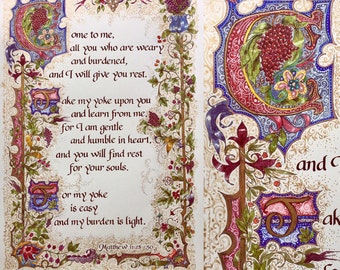 Come to me,
all you who are weary
and burdened,
and I will give you rest.
Take my yoke upon you
and learn from me,
for I am gentle
and humble in heart,
and you will find rest
for your souls.
For my yoke
is easy
and my burden is light.
Matthew 11:28-30
C
and I
Take